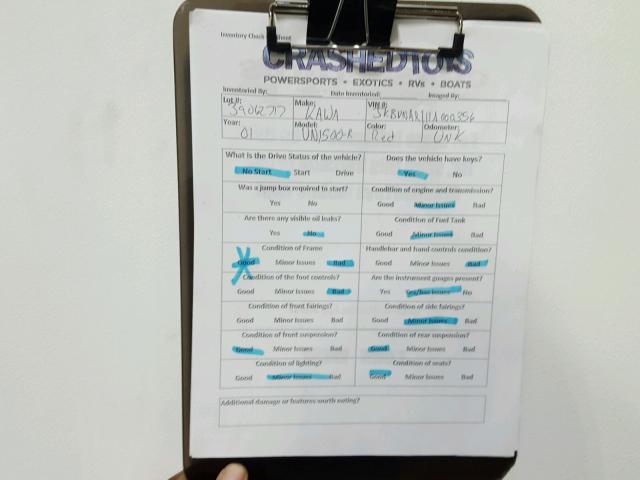 Inventory Check Sheet
CRASHEDTOYS
POWERSPORTS • EXOTICS • RVs • BOATS
Inventoried By: Date Inventoried: Imaged By:
Lot #: Make: VIN #:
39062717 KAWA
Year: Model: Color: Odometer:
01 Red UNK
What is the Drive Status of the vehicle? Does the vehicle have keys?
No Start Start Drive Yes No
Was a jump box required to start? Condition of engine and transmission?
Yes No Good Minor Issues Bad
Are there any visible oil leaks? Condition of Fuel Tank
Yes No Good Minor Issues Bad
Condition of Frame Handlebar and hand controls condition?
Good Minor Issues Bad Good Minor Issues Bad
Condition of the foot controls? Are the instrument guages present?
Good Minor Issues Bad Yes Yes/has issues No
Condition of front fairings? Condition of side fairings?
Good Minor Issues Bad Good Minor Issues Bad
Condition of front suspension? Condition of rear suspension?
Good Minor Issues Bad Good Minor Issues Bad
Condition of lighting? Condition of seats?
Good Minor Issues Bad Good Minor Issues Bad
Additional damage or features worth noting?